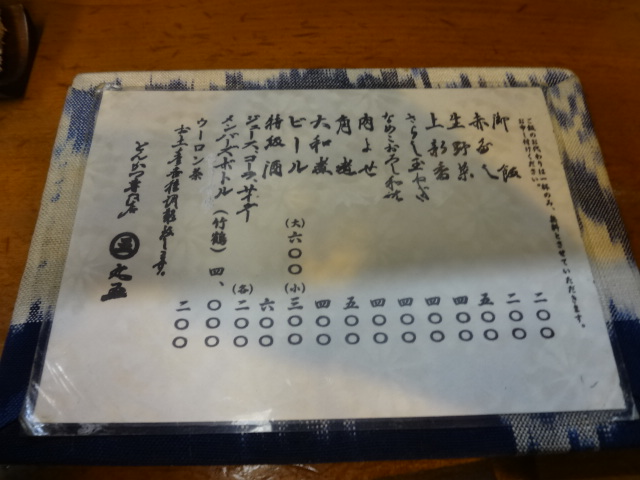 ご飯のお代わりは一杯のみ、無料とさせていただきます。
お申し付けください。
御飯 二〇〇
赤だし 二〇〇
生野菜 五〇〇
上新香 四〇〇
さらし玉ねぎ 四〇〇
なめこおろし和え 四〇〇
肉よせ 四〇〇
角煮 五〇〇
大和煮 四〇〇
ビール (大)六〇〇 (小)三〇〇
特級酒 六〇〇
ジュース、コーラ、サイダー (各)二〇〇
メンバーズボトル(竹鶴) 四、〇〇〇
ウーロン茶 二〇〇
とんかつ専門店 丸五